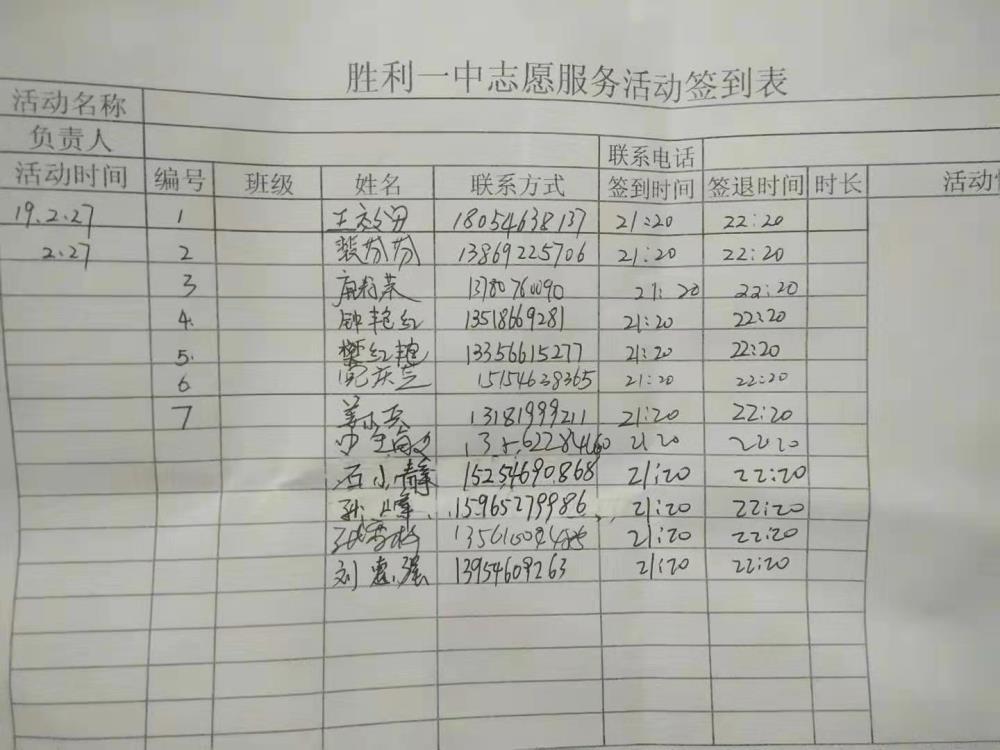 胜利一中志愿服务活动签到表
活动名称
负责人 联系电话
活动时间 编号 班级 姓名 联系方式 签到时间 签退时间 时长 活动
19.2.27 1 18054638137 21:20 22:20
2.27 2 裴芬芬 13869225706 21:20 22:20
3 13780760090 21:20 22:20
4. 钟艳红 13518669281 21:20 22:20
5. 樊红艳 13356615277 21:20 22:20
6 15154638365 21:20 22:20
7 13181999211 21:20 22:20
21 20 22 20
石小静 15254690868 21:20 22:20
孙峰 15965279986 21:20 22:20
21:20 22:20
刘惠强 13954609263 21:20 22:20